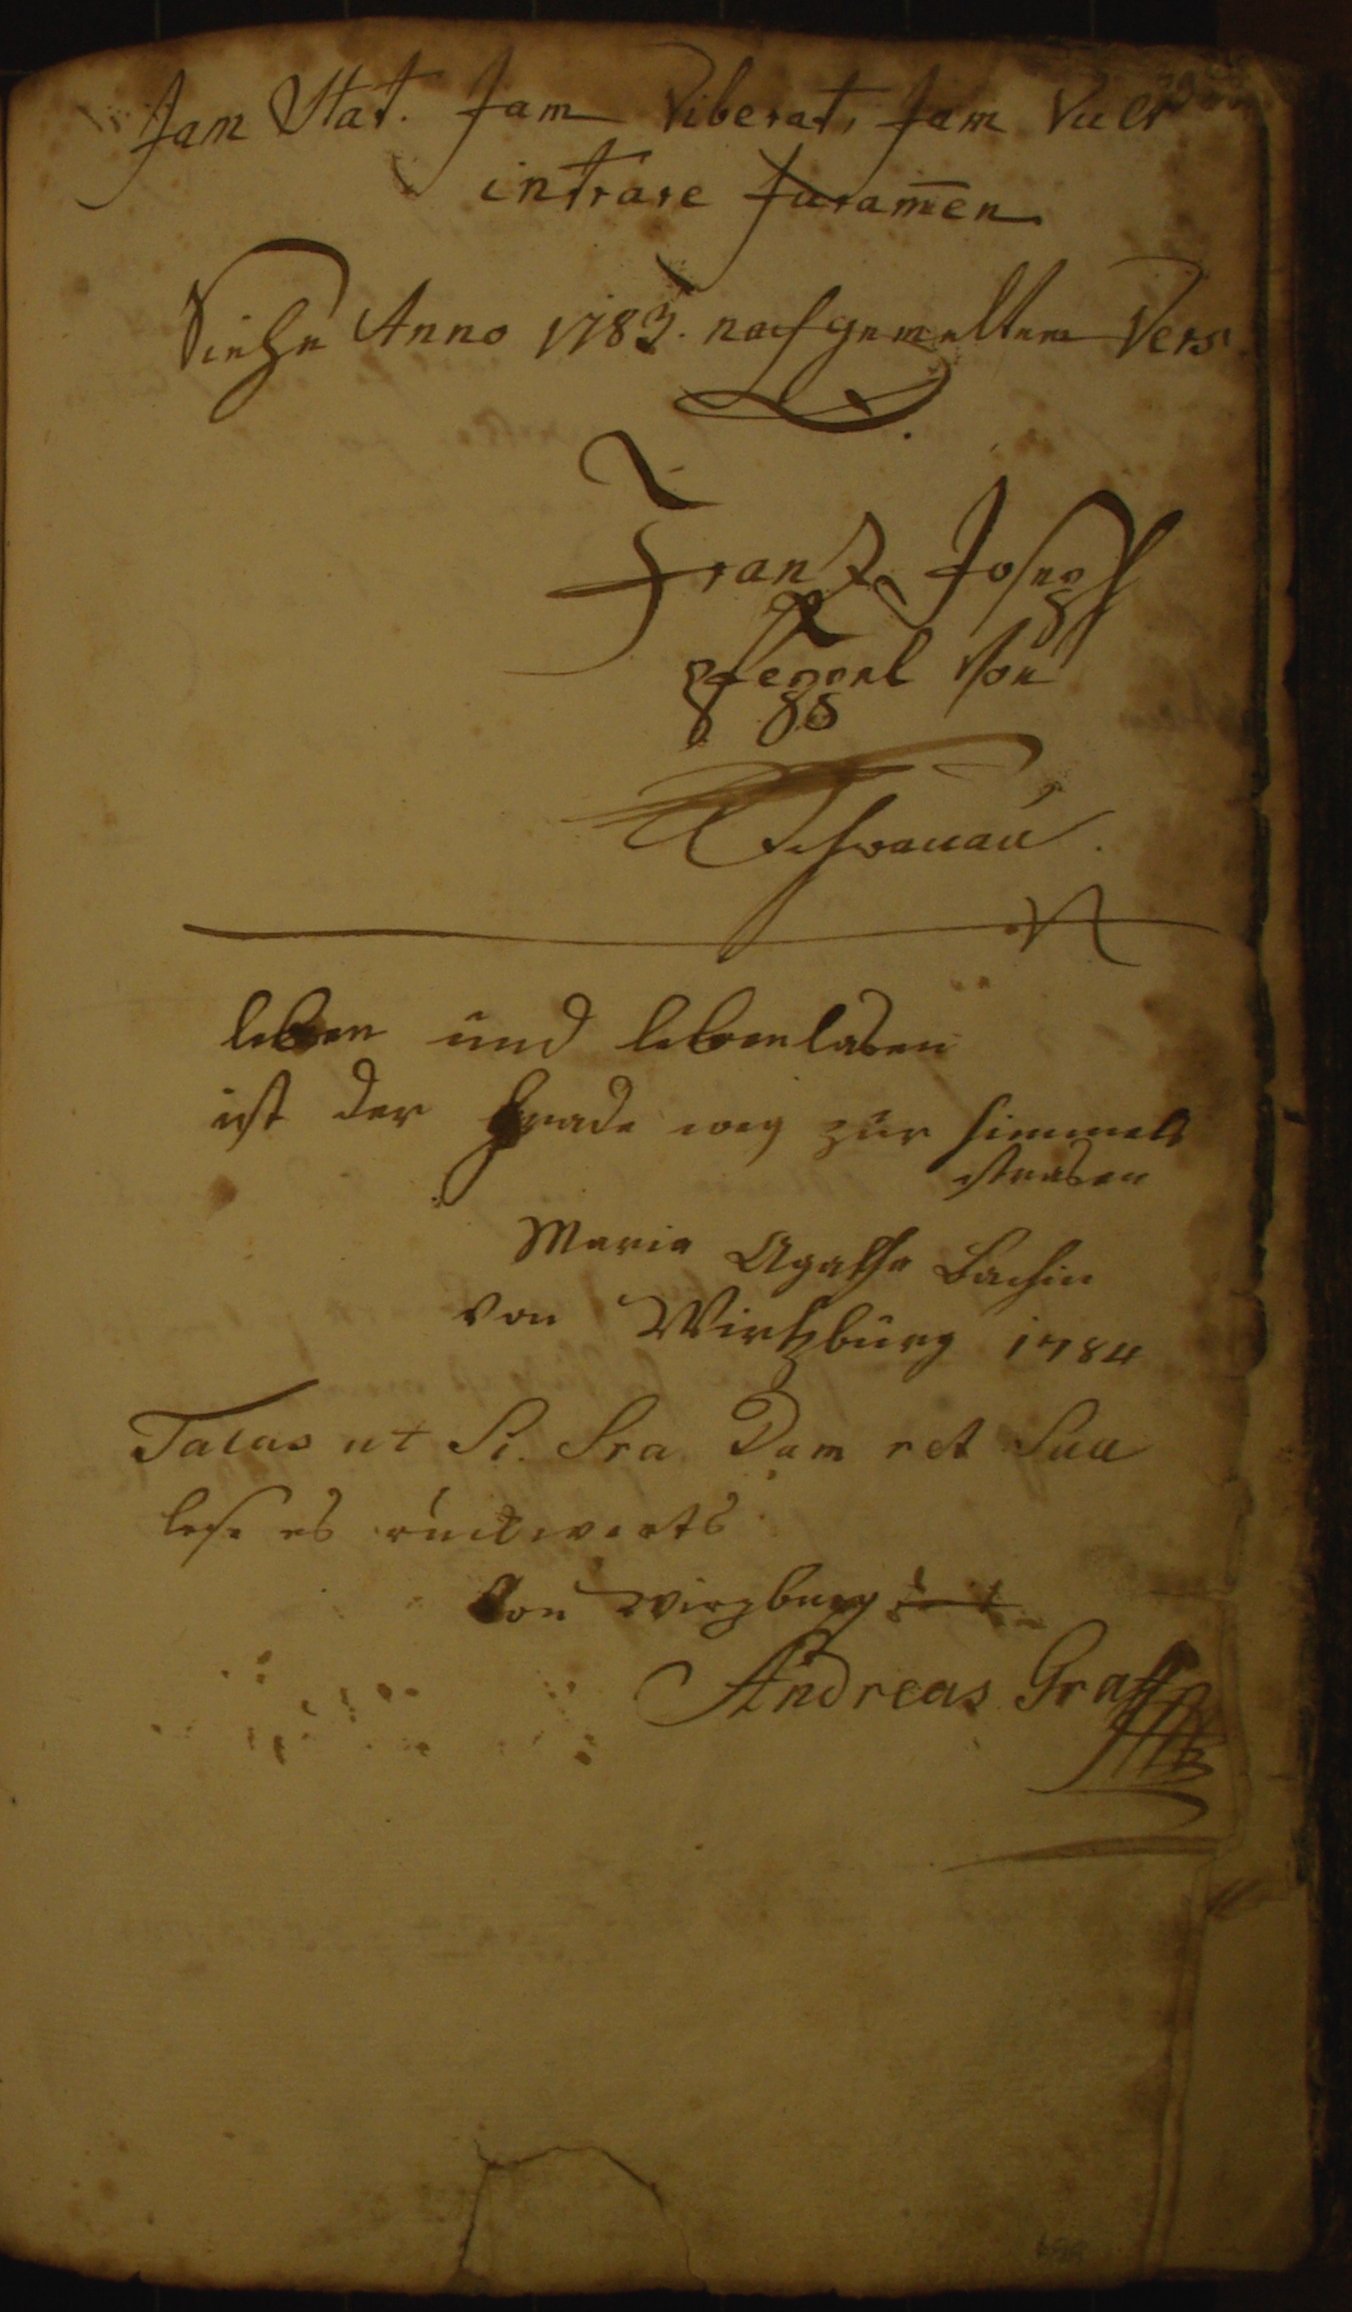 Jam Stat. Jam Viberat, Jam Vult
intrare Juram̄en
Siehe Anno 1783. nachgemelten Vers
Frantz Joseph
von
leben und leben lasen
ist der grade weg zur himmels
strasen
Maria Agatha Bachin
von Wirtzburg 1784
Tacas ut Si. Sra Dam ret Sua
lese es rückwerts
Von Wirzburg
Andreas Graff